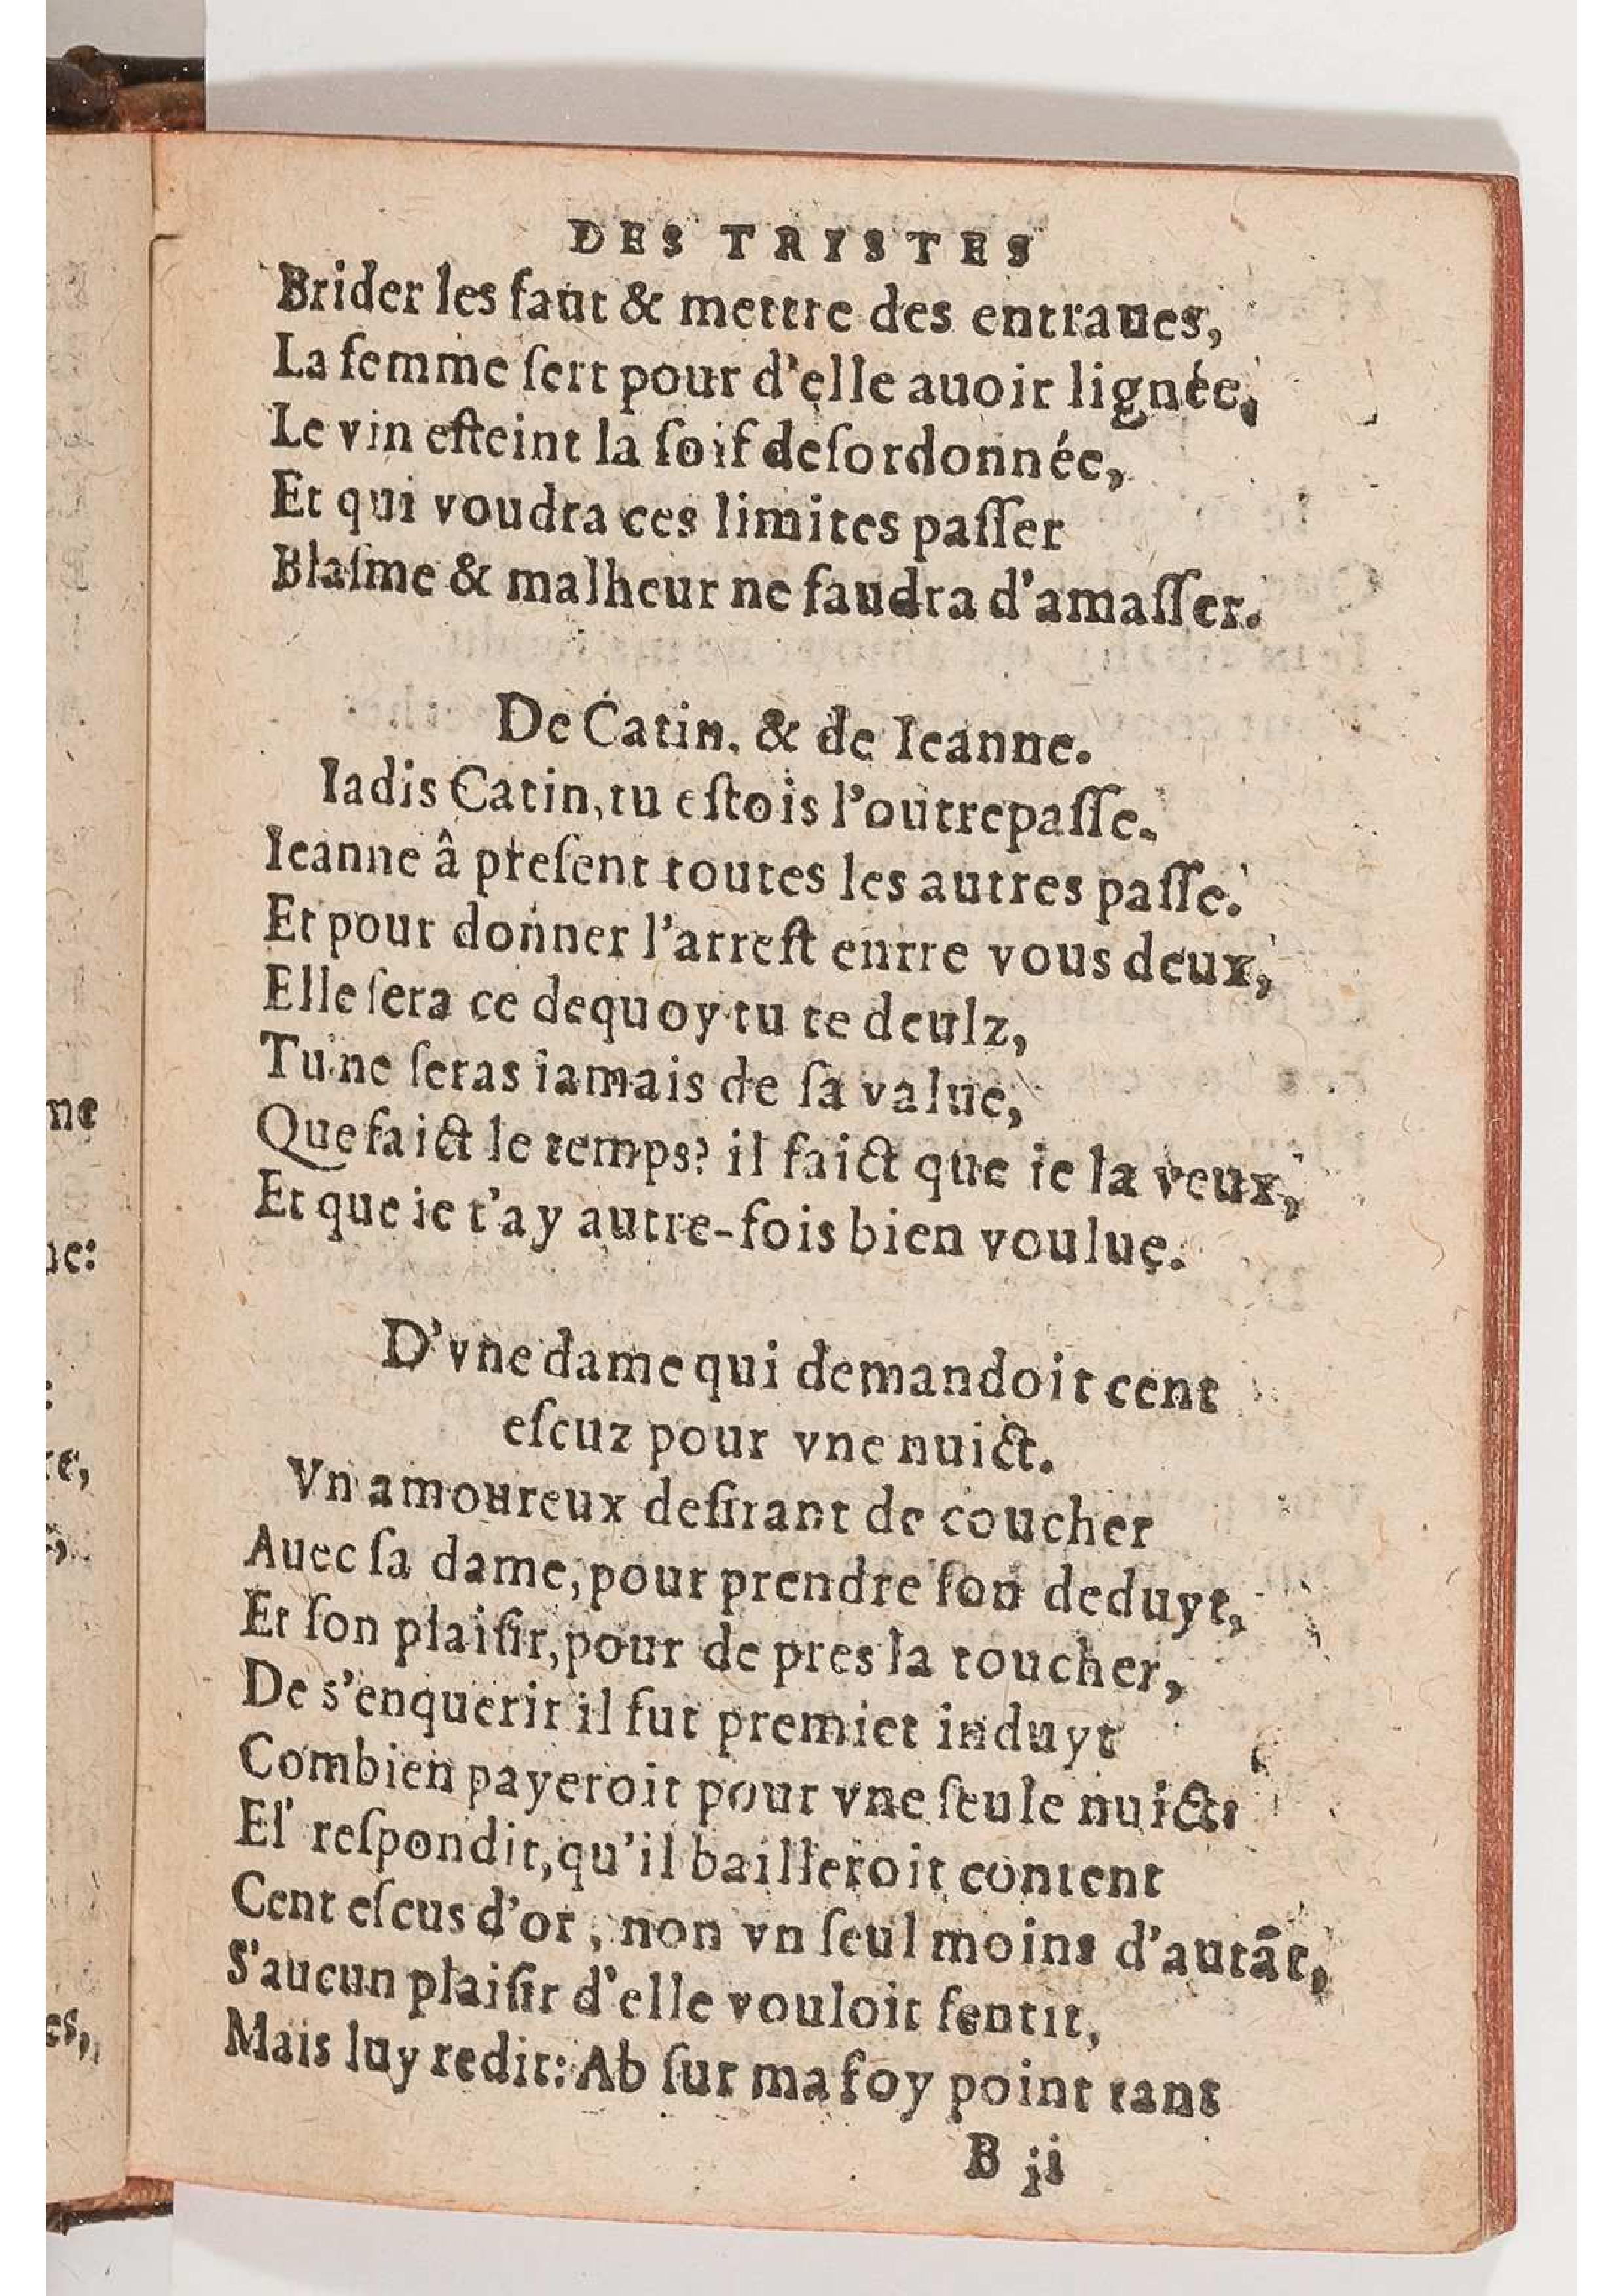 DES TRISTES
Brider les faut & mettre des entraues,
La femme ſert pour d'elle auoir lignée,
Le vin eſteint la ſoif deſordonnée,
Et qui voudra ces limites paſſer
Blaſme & malheur ne faudra d'amaſſer.
De Catin. & de Ieanne.
Iadis Catin, tu eſtois l'outrepaſſe.
Ieanne â preſent toutes les autres paſſe.
Et pour donner l'arreſt enrre vous deux,
Elle ſera ce dequoy tu te deulz,
Tu ne ſeras iamais de ſa value,
Que faict le temps? il faict que ie la veux,
Et que ie t'ay autre-fois bien voulue.
D'vne dame qui demandoit cent
eſcuz pour vne nuict.
Vn amoureux deſirant de coucher
Auec ſa dame, pour prendre ſon deduyt,
Et ſon plaiſir, pour de pres la toucher,
De s'enquerir il fut premier induyt
Combien payeroit pour vne ſeule nuict:
El' reſpondit, qu'il bailleroit content
Cent eſcus d'or, non vn ſeul moins d'autãt,
S'aucun plaiſir d'elle vouloit ſentir,
Mais luy redit: Ab ſur ma foy point tant
B ij
ne
ne:
:
re,
es,